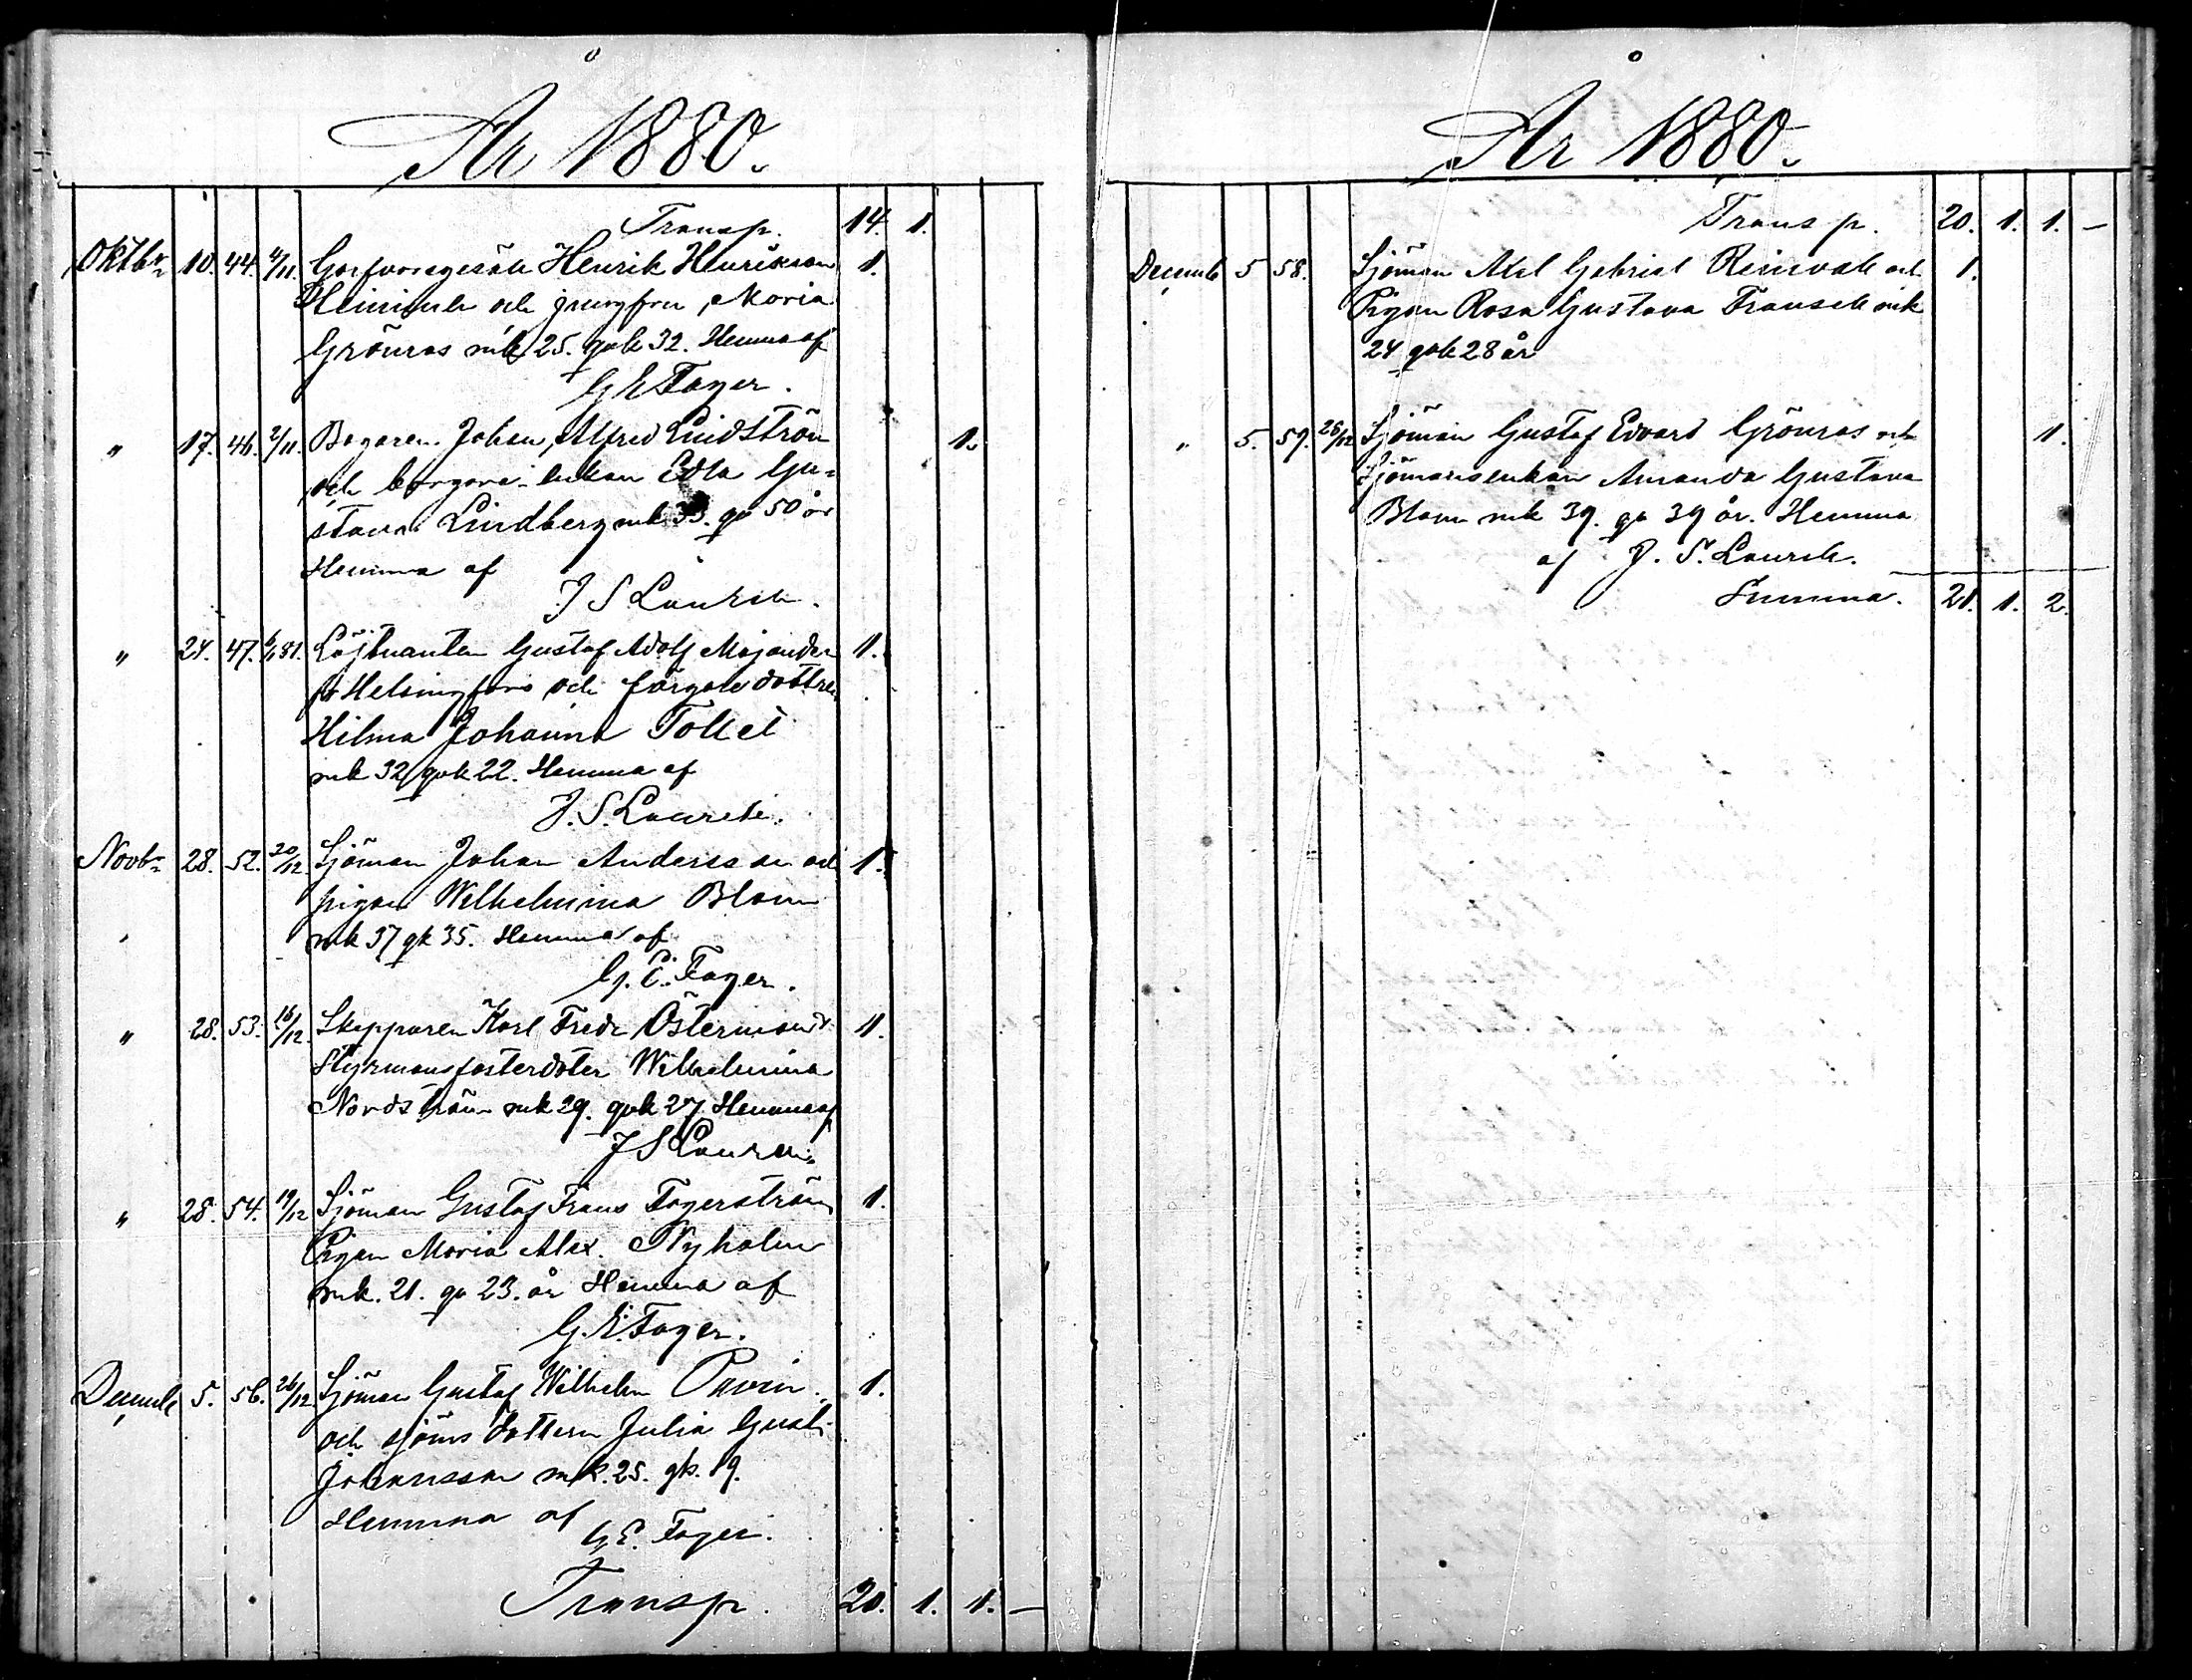 År 1880.
Transp. 14. 1.
Oktbr 10. 44. 4/11. Garfvaregesäll Henrik Henrikson 1.
och jungfru Maria
Grönros mk 25. qvk 32. Hemma af
G E Fager.
" 17. 46. 2/11. Bagaren Johan Alfred Lindström 1.
och borgare enkan Edla Gu-
stava Lindberg mk 33. qv 50 år
Hemma af
J S Laurén.
" 24. 47. 6/1 81. Löjtnanten Gustaf Adolf Majander 1.
fr Helsingfors och färgare dottren
Hilma Johanna Tollet
mk 32 qvk 22. Hemma af
J. S. Laurén.
Novbr 28. 52. 20/12. Sjöman Johan Andersson och 1.
pigan Wilhelmina Blom
mk 37 qk 35. Hemma af
G. E. Fager.
" 28. 53. 16/12. Skepparen Karl Fredr Österman 1.
Styrmansfosterdoter Wilhelmina
Nordström mk 29. qvk 27. Hemma af
J S Laurén.
" 28. 54. 19/12 Sjöman Gustaf Frans Fagerström 1.
Pigan Maria Alex. Nyholm
mk. 21. qv 23. år Hemma af
G. E. Fager.
Decemb 5. 56. 26/12 Sjöman Gustaf Wilhelm 1.
och sjöms dottern Julia Gust.
Johansson mk. 25. qk. 19.
Hemma af
G E. Fager.
Transp. 20. 1. 1. —
År 1880.
Transp. 20. 1. 1. —
Decemb 5 58. Sjöman Axel Gabriel Reinvall och 1.
Pigan Rosa Gustava Fransén mk
24 qvk 28 år
" 5. 59. 26/12 Sjöman Gustaf Edvard Grönros och 1.
Sjömansenkan Amanda Gustava
Blom mk 39. qv 39 år. Hemma
af J. S. Laurén.
Summa. 21. 1. 2.